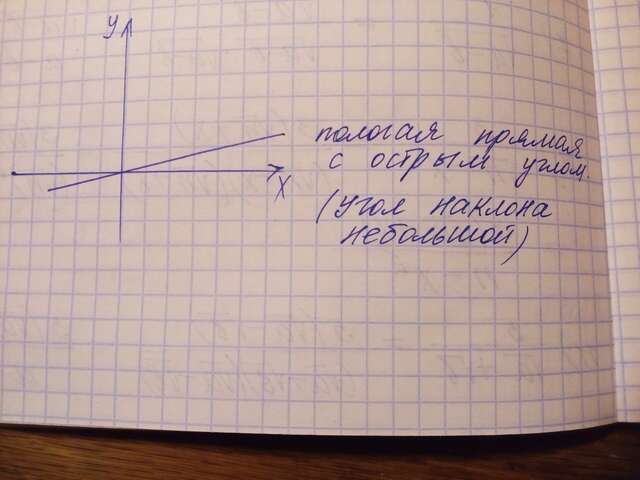 y
пологая прямая
с острым углом.
x
(угол наклона
небольшой)